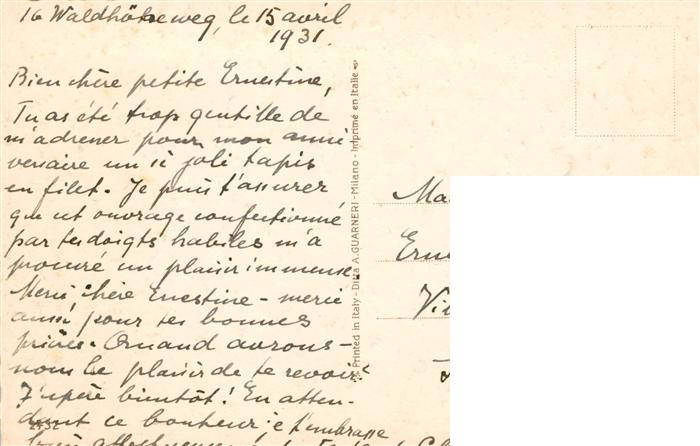 16 Waldhötheweg, le 15 avril
1931.
Bien chère petite Ernestine,
Tu as été trop gentille de
m'adresser pour mon anni
versaire un si joli tapis
en filet. Je puis t'assurer
que cet ouvrage confectionné
par tes doigts habiles m'a
procuré un plaisir immense.
Merci chère Ernestine - merci
aussi pour tes bonnes
prières. Quand aurons-
nous le plaisir de te revoir?
J'espère bientôt! En atten-
dant ce bonheur je t'embrasse
bien affectueusement
Printed in Italy - Ditta A. GUARNERI - Milano - Imprimé en Italie
Ma
Ern
Vi